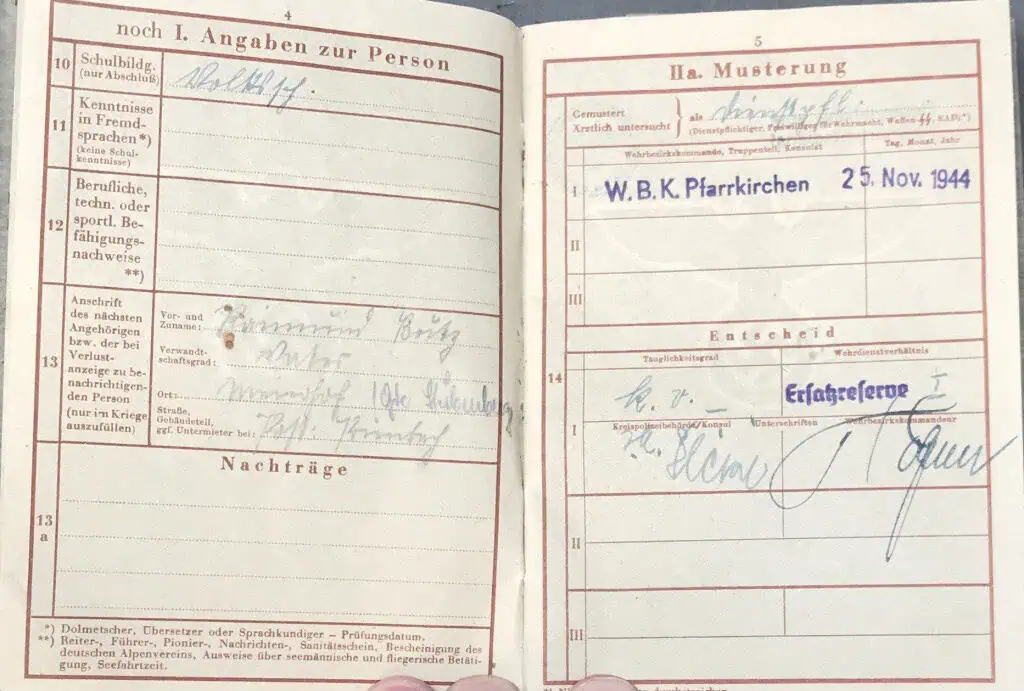 4
noch I. Angaben zur Person
10
Schulbildg.
(nur Abschluß)
Volkssch.
11
Kenntnisse
in Fremd-
sprachen *)
(keine Schul-
kenntnisse)
12
Berufliche,
techn. oder
sportl. Be-
fähigungs-
nachweise
**)
13
Anschrift
des nächsten
Angehörigen
bzw. der bei
Verlust-
anzeige zu be-
nachrichtigen-
den Person
(nur im Kriege
auszufüllen)
Vor- und
Zuname:
Raimund
Verwandt-
schaftsgrad:
Vater
Ort:
Meierhof
Straße,
Gebäudeteil,
ggf. Untermieter bei:
Post
Nachträge
13
a
*) Dolmetscher, Übersetzer oder Sprachkundiger – Prüfungsdatum.
**) Reiter-, Führer-, Pionier-, Nachrichten-, Sanitätsschein, Bescheinigung des
deutschen Alpenvereins, Ausweise über seemännische und fliegerische Betäti-
gung, Seefahrtzeit.
5
IIa. Musterung
Gemustert
Ärztlich untersucht
als
dienstpfl.
(Dienstpflichtiger, Freiwilliger für Wehrmacht, Waffen-SS, RAD; *)
Wehrbezirkskommando, Truppenteil, Konsulat
Tag, Monat, Jahr
I
W.B.K. Pfarrkirchen
25. Nov. 1944
II
III
Entscheid
14
Tauglichkeitsgrad
Wehrdienstverhältnis
k. v.
Ersatzreserve I
I
Kreispolizeibehörde/Konsul
Unterschriften
Wehrbezirkskommandeur
II
III